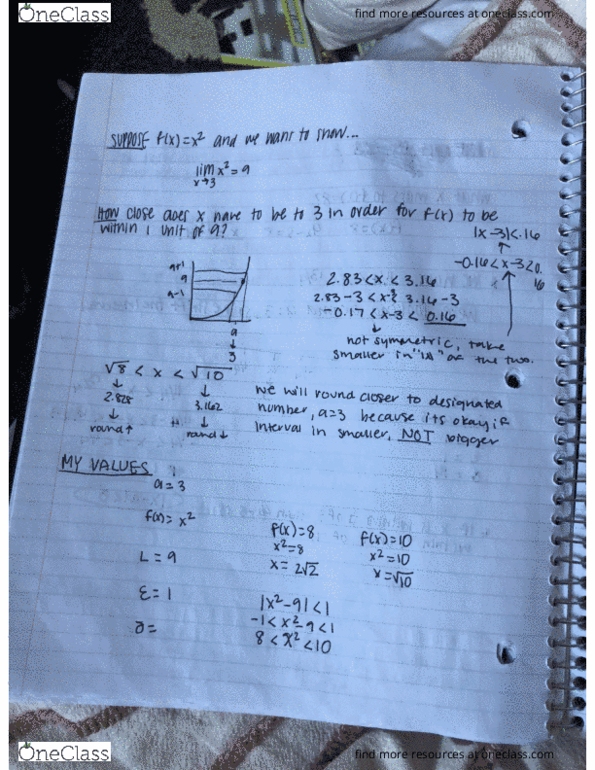 OneClass
find more resources at oneclass.com
SUPPOSE f(x)=x² and we want to show...
lim x²=9
x→3
HOW close does x have to be to 3 in order for f(x) to be
within 1 unit of 9?
|x-3|<.16
↑
-0.16<x-3<0.
16
9+1
9
9-1
a
↓
3
2.83<x<3.16
2.83-3<x-3<3.16-3
-0.17<x-3<0.16
↓
not symmetric, take
smaller in "18" of the two.
√8 < x < √10
↓ ↓
2.828 3.162
↓ ↓
round↑ round↓
we will round closer to designated
number, a=3 because its okay if
interval in smaller, NOT bigger
MY VALUES
a=3
f(x)=x²
L=9
ε=1
∂=
f(x)=8
x²=8
x=2√2
f(x)=10
x²=10
x=√10
|x²-9|<1
-1<x²-9<1
8<x²<10
OneClass
find more resources at oneclass.com